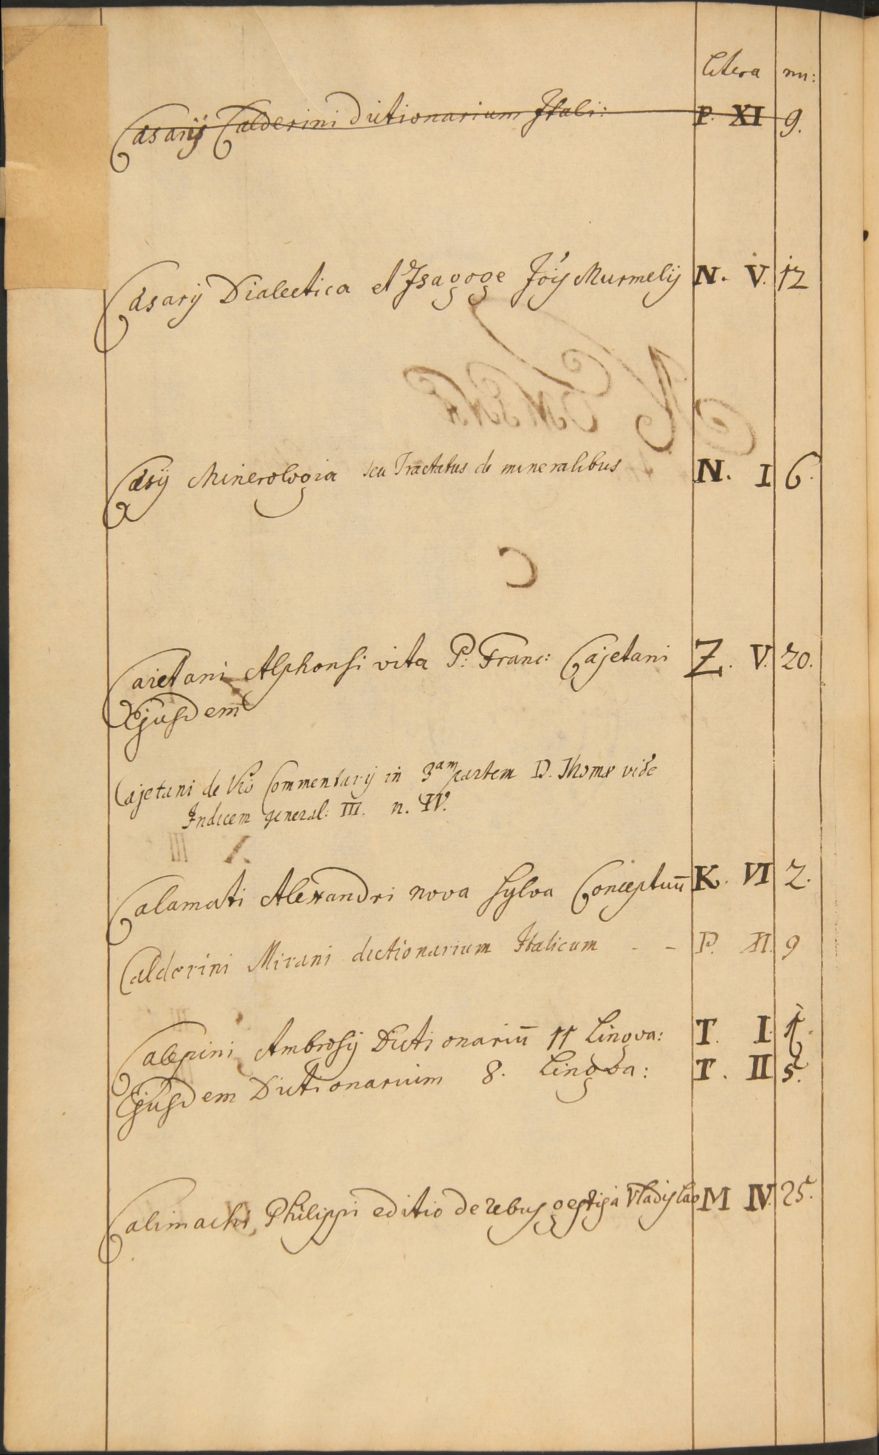 litera nu:
Cæsarij Calderini Dictionarium Itali: P. XI 9.
Cæsarij Dialectica et Isagoge Jois Murmelij N. V. 12
Cæsij Minerologia seu Tractatus de mineralibus N. I 6.
Caietani Alphonsi vita P. Franc: Cajetani Z. V. 20.
Ejusdem
Cajetani de Vio Commentarij in 3am partem D. Thomæ vide
Indicem general: III. n. IV.
Calamati Alexandri nova sylva Conceptuū K. VI 2.
Calderini Mirani dictionarium Italicum - - P. XI. 9
Calepini Ambrosij Dictionariū 11 Lingva: T. I.
Ejusdem Dictionarium 8. Lingva: T. II 5.
Calimachi Philippi editio de rebus gestis à Vladislao M IV. 25.